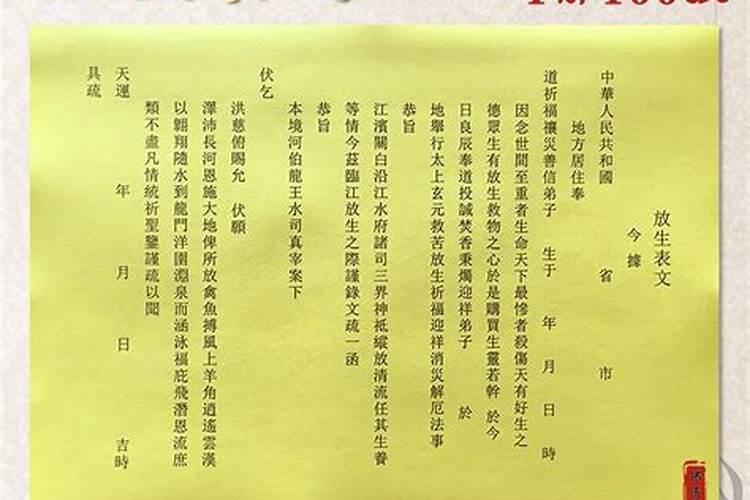 放生表文
今據
中華人民共和國 省 市
地方居住奉
道祈福禳災善信弟子 生于 年 月 日 時
因念世間至重者生命天下最慘者殺傷天有好生之
德眾生有放生救物之心於是購買生靈若幹 於今
日良辰奉道投誠焚香秉燭迎祥弟子 於
地舉行太上玄元救苦放生祈福迎祥消災解厄法事
恭旨
江濱關白沿江水府諸司三界神祇縱放清流任其生養
等情今茲臨江放生之際謹錄文疏一函
恭旨
本境河伯龍王水司真宰案下
伏乞
洪慈俯賜允 伏願
澤沛長河恩施大地俾所放禽魚搏風上羊角逍遙雲漢
以翱翔隨水到龍門洋圍淵泉而涵泳福庇飛潛恩流庶
類不盡凡情統祈聖鑒謹疏以聞
天運 年 月 日 吉時
具疏